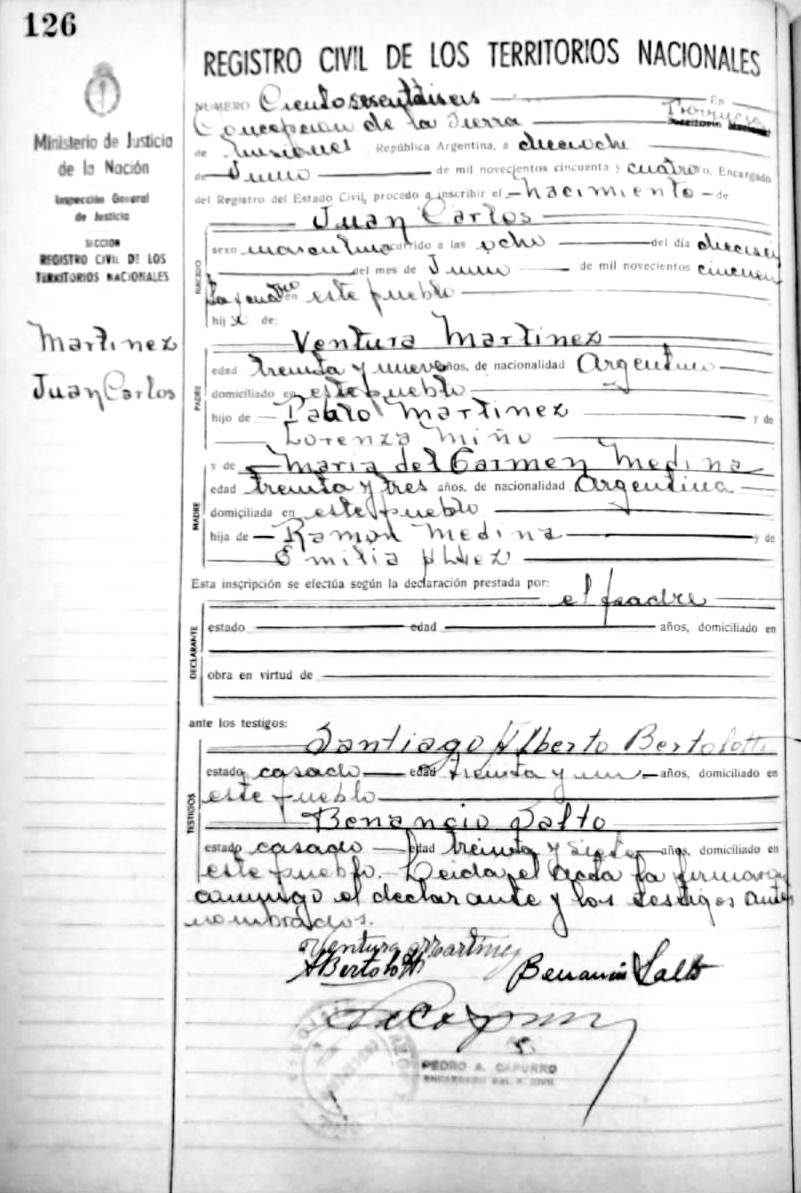 126
REGISTRO CIVIL DE LOS TERRITORIOS NACIONALES
Ministerio de Justicia
de la Nación
Inspección General
de Justicia
SECCION
REGISTRO CIVIL DE LOS
TERRITORIOS NACIONALES
Martinez
Juan Carlos
NUMERO Ciento sesentidiseis En
Concepcion de la Sierra Provincia Territorio Nacional
de Misiones República Argentina, a dieciocho
de Junio de mil novecientos cincuenta y cuatro yo, Encargado
del Registro del Estado Civil, procedo a inscribir el nacimiento de
Juan Carlos
NACIDO
sexo masculino ocurrido a las ocho del día dieciseis
del mes de Junio de mil novecientos cincuen
ta y cuatro en este pueblo
hijo de:
Ventura Martinez
PADRE
edad treinta y nueve años, de nacionalidad Argentino
domiciliado en este pueblo
hijo de Pablo Martinez y de
Lorenza Miño
y de Maria del Carmen Medina
MADRE
edad treinta y tres años, de nacionalidad Argentina
domiciliada en este pueblo
hija de Ramon Medina y de
Emilia
Esta inscripción se efectúa según la declaración prestada por:
el padre
DECLARANTE
estado edad años, domiciliado en
obra en virtud de
ante los testigos:
Santiago Alberto Bertolotti
TESTIGOS
estado casado edad treinta y un años, domiciliado en
este pueblo
Benancio Salto
estado casado edad treinta y siete años, domiciliado en
este pueblo. Leida el acta la firmaron
conmigo el declarante y los testigos antes
nombrados.
Ventura Martinez
ABertolotti Benancio Salto
PEDRO A. CAPURRO
ENCARGADO DEL R. CIVIL